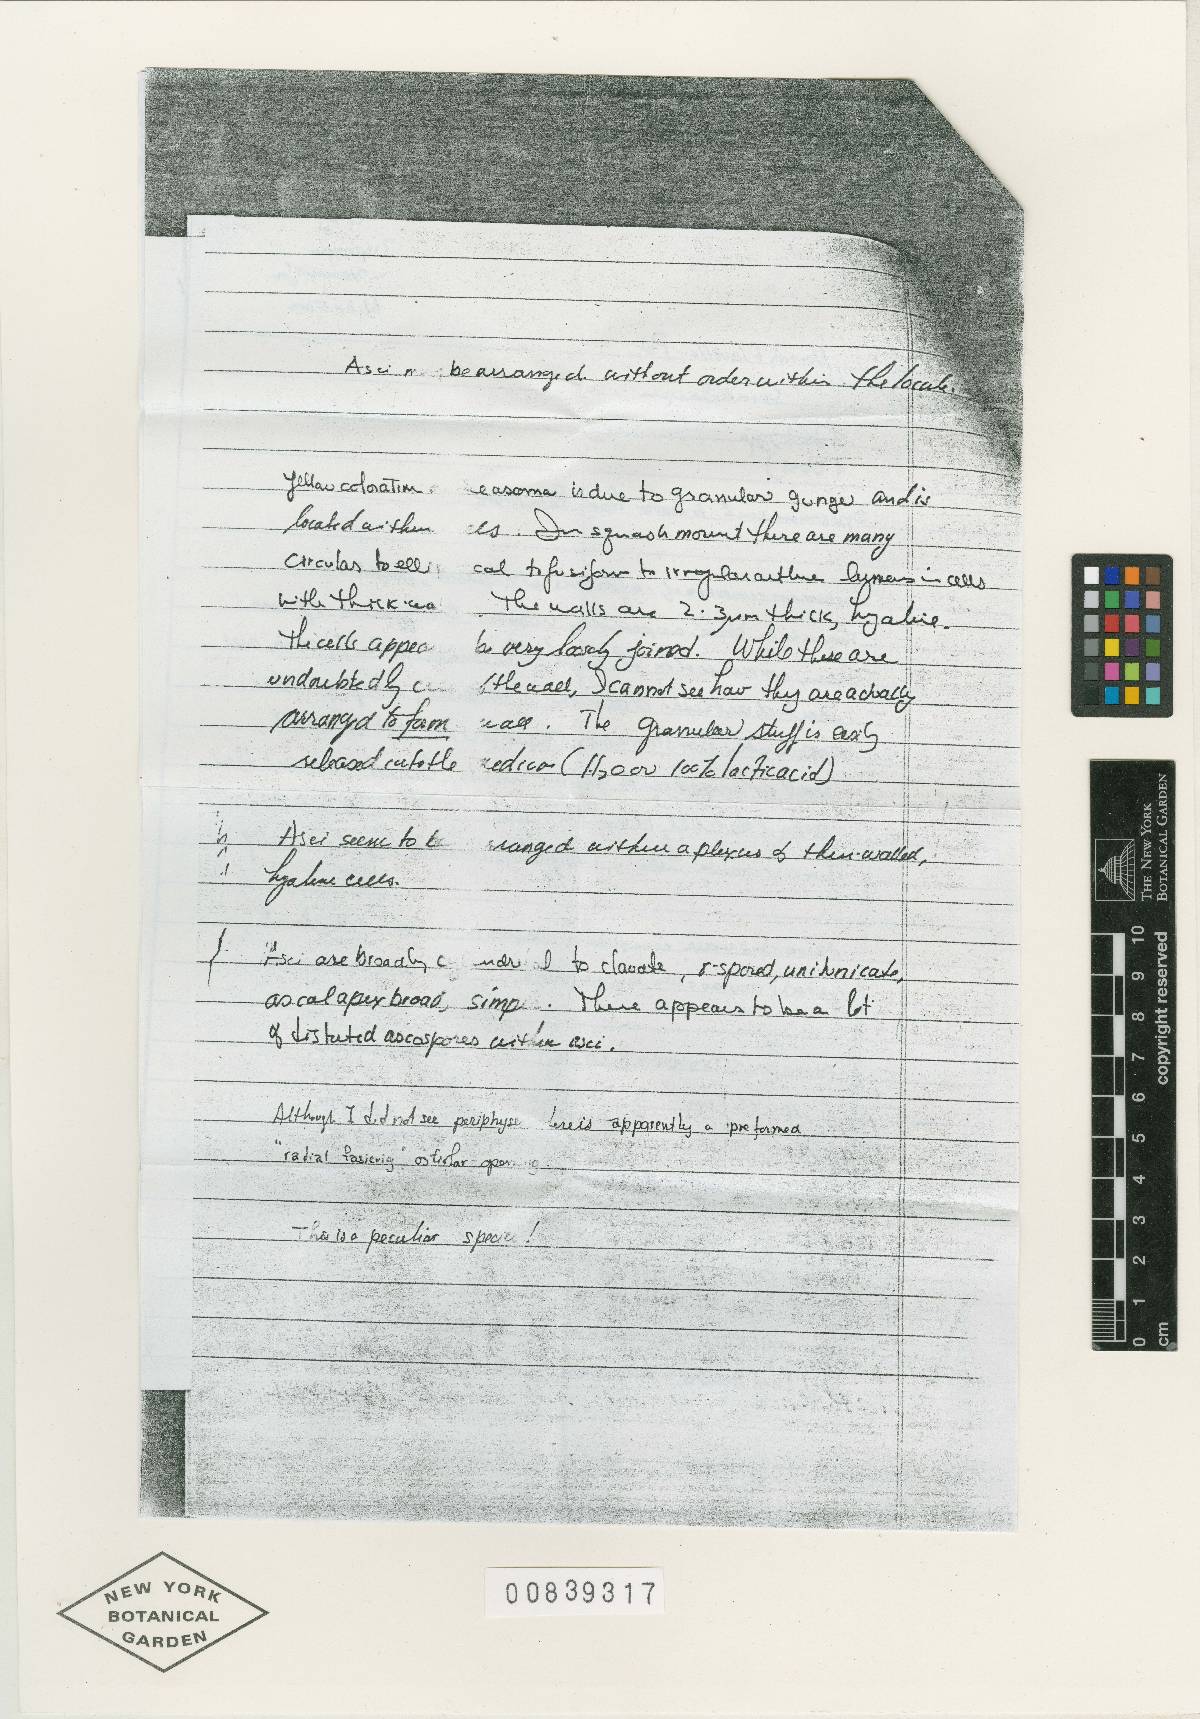 Asci be arranged without order within the locule.
Yellow coloration is due to granular gunge and is
located within . In squash mount there are many
circular to elli cal to fusiform to irregular outline in cells
with thick wa The walls are 2-3µm thick, hyaline.
The cells appea be very loosely joined. While these are
undoubtedly the wall, I cannot see how they are actually
arranged to form wall. The granular stuff is easily
released into the medium (H2O or 100% lactic acid)
Asci seem to be ranged within a plexus of thin-walled,
hyaline cells.
Asci are broadly c indr l to clavate, 8-spored, unitunicate,
ascal apex broad, simp . There appears to be a lot
of distorted ascospores within asci.
Although I did not see periphyse here is apparently a preformed
"radial " ostiolar opening
This is a peculiar specie !
NEW YORK
BOTANICAL
GARDEN
00839317
THE NEW YORK
BOTANICAL GARDEN
copyright reserved
0 1 2 3 4 5 6 7 8 9 10
cm